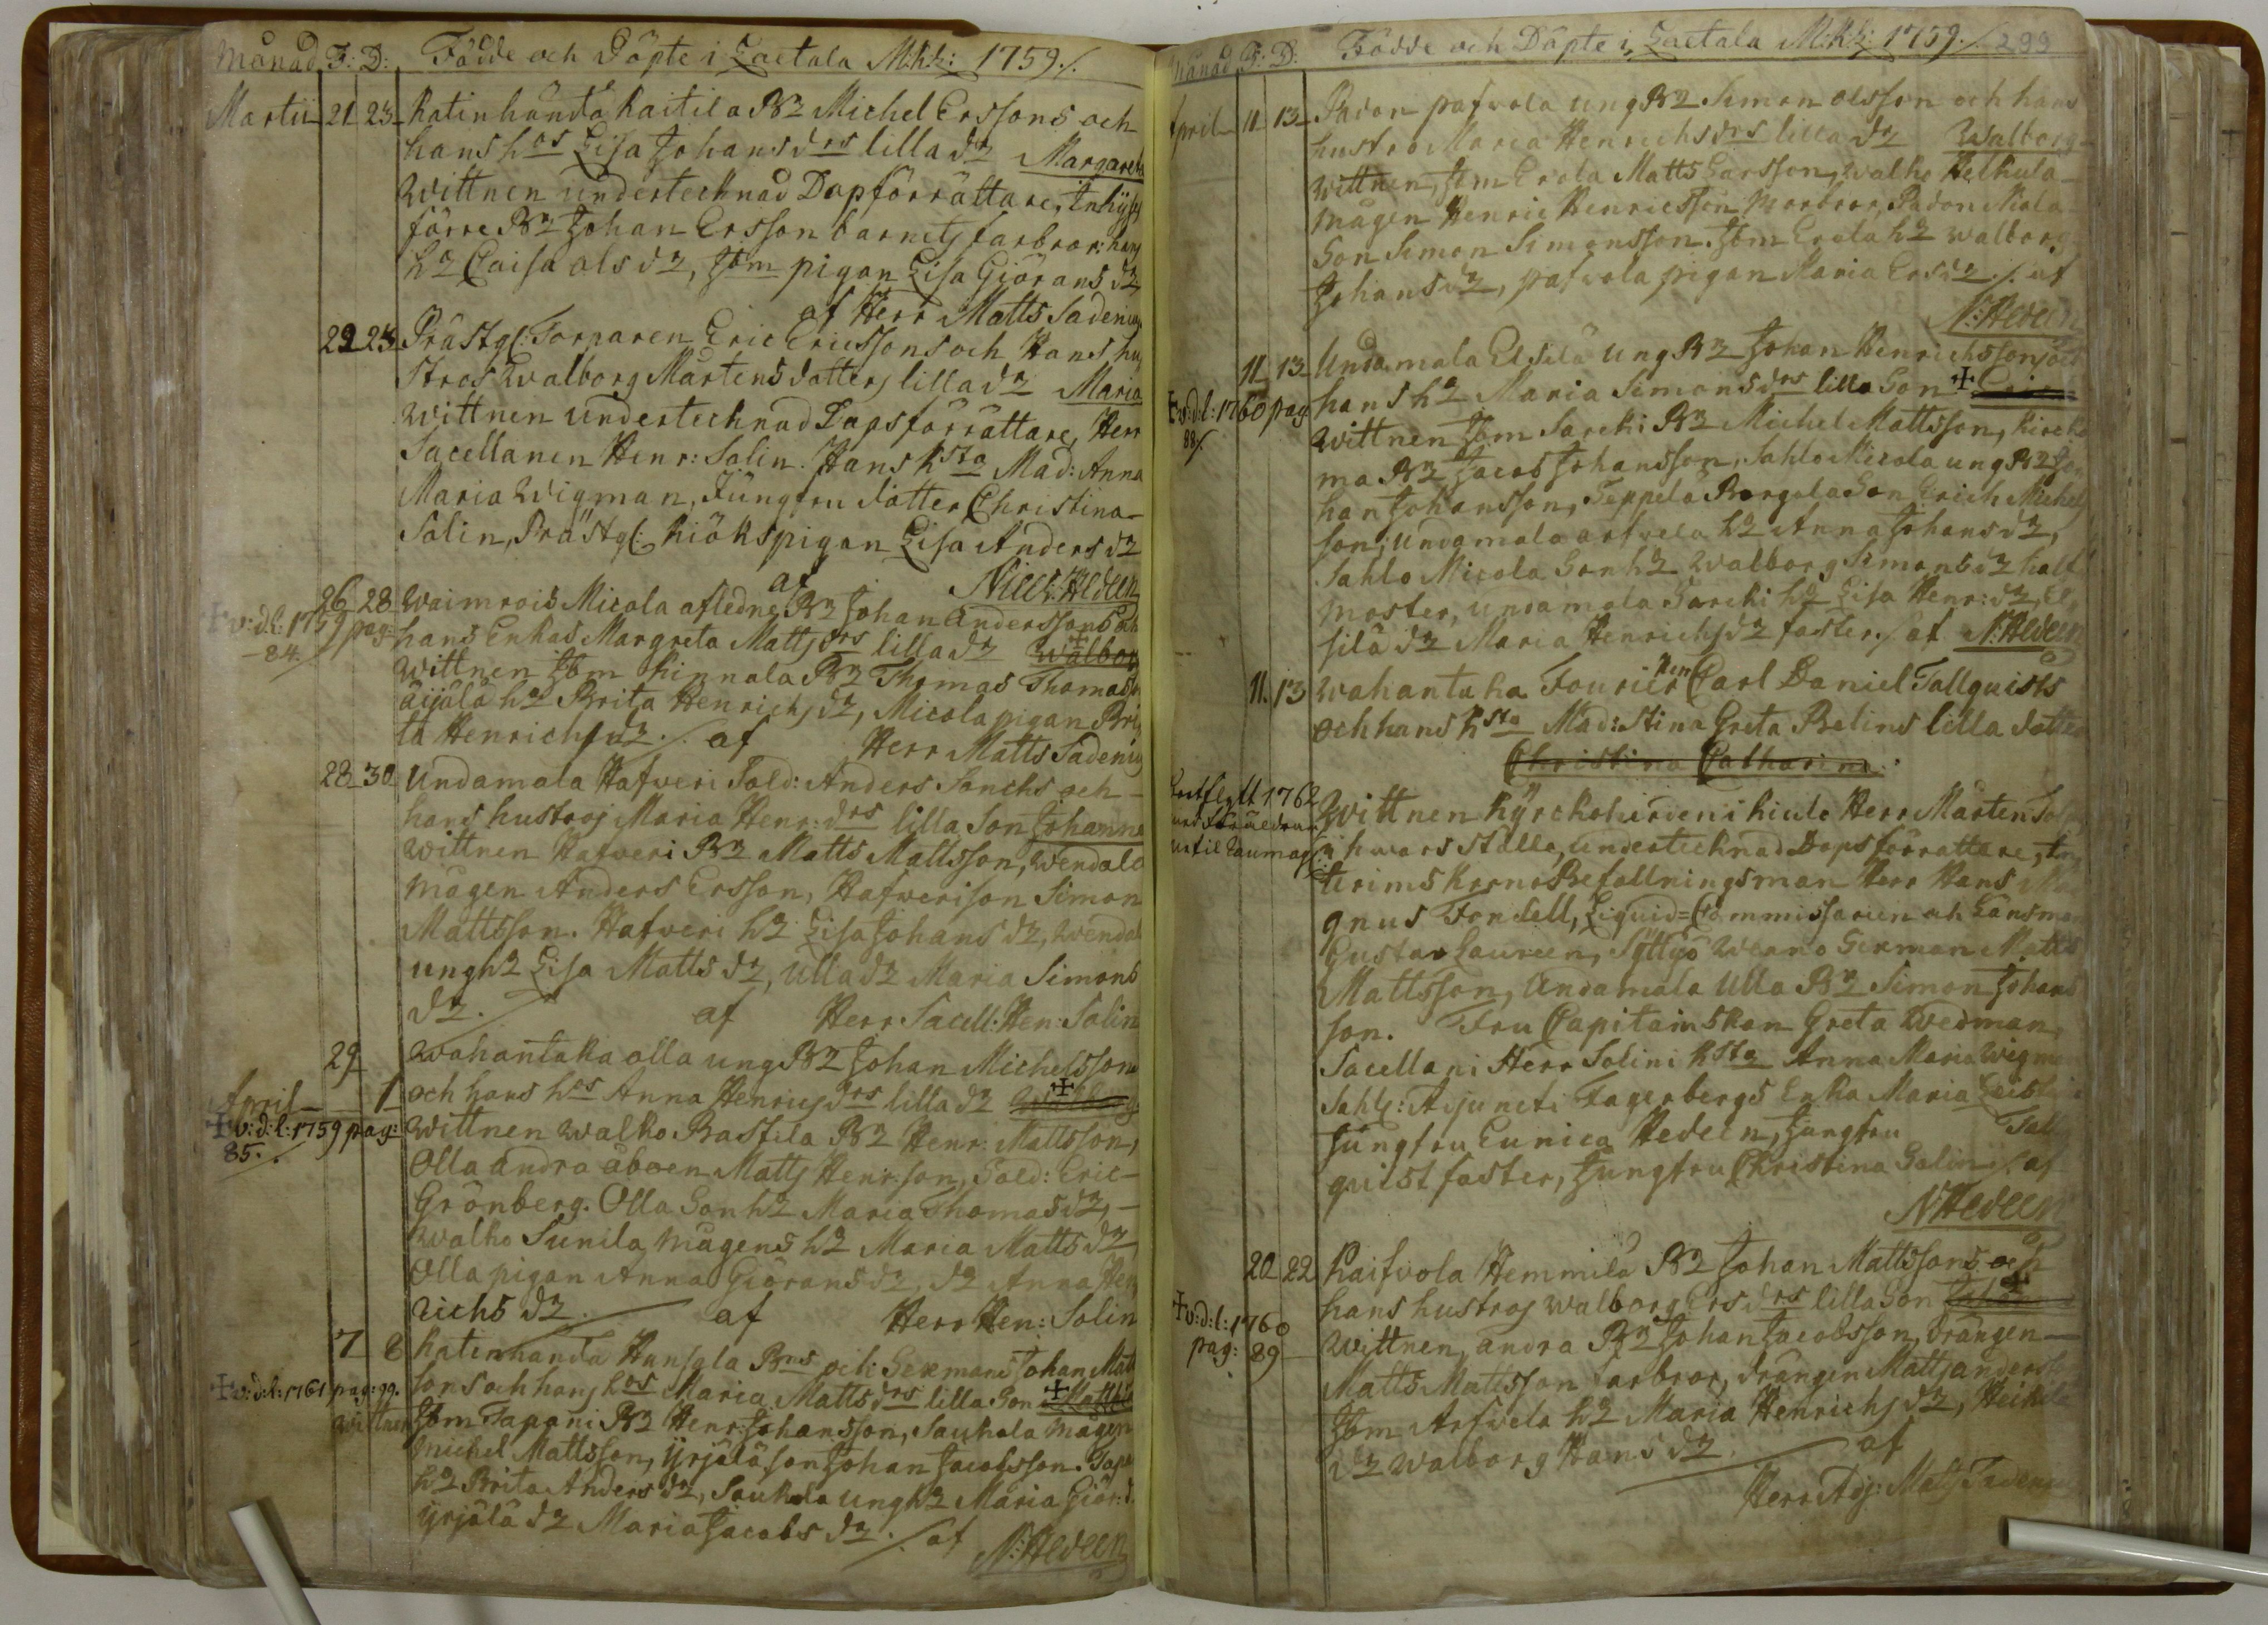 Månad F: D: Födde och Döpte i Laetala M:k:L: 1759./.
Martii 21 23 Katinhånta Kaitila Br Michel Erssons och
hans hos Lisa Johansdrs lilla dr Margareta
Wittnen undertecknad Dopförrättare, Inhyses
förre Br Johan Ersson barnets farbror: hans
hr Caisa Olsdr, Ibm pigan Lisa Giöransdr
af Herr Matts Sadenius
22 23 Prästg: Torparen Eric Ericssons och Hans hu
stros Walborg Mårtens dotters lilla dr Maria
Wittnen undertecknad Dopsförrättare, Herr
Sacellanen Henr: Salin. Hans hsta Mad: Anna
Maria Wigman, Jungfru dotter Christina
Salin, Prästg: Kiökspigan Lisa Andersdr
af Nils: Hedeen
26 28 Waimrois Micola afledne Br Johan Anderssons och
+ v:d:l: 1759 pag: hans Enkas Margreta Mattsdrs lilla dr Walborg
84. Wittnen Ibm Kinnala Br Thomas Thomass
Äijälä hr Brita Henrichsdr, Micola pigan Bri
ta Henrichsdr ./. af Herr Matts Sadenius
28 30 Undamala Hafveri Sold: Anders Sanchs och
hans hustros Maria Henr: drs lilla Son Johannes
Wittnen Hafveri Br Matts Mattsson, Wendala
mågen Anders Ersson, Hafverison Simon
Mattsson. Hafveri hr Lisa Johansdr, Wendal
ung hr Lisa Mattsdr, Ulla dr Maria Simons
dr. af Herr Sacell: Hen: Salin
29 Wahantaka Olla ung Br Johan Michelssons
April 1 och hans hos Anna Henricsdrs lilla dr Walborg
+ v:d:l: 1759 pag: Wittnen Walko Rastila Br Henr: Mattsson,
85. Olla andra åboen Matts Henr:son, Sold: Eric
Grönberg. Olla Son hr Maria Thomasdr,
Walko Sunila mågens hr Maria Mattsdr
Olla pigan Anna Giöransdr, dr Anna Hen
richsdr. af Herr Hen: Salin
7 8 Katinhanta Hansala Brns och Sexmans Johan Matt
+ v:d:l: 1761 pag: 99. sons och hans hos Maria Mattsdrs lilla Son Matths
Wittnen Ibm Tapani Br Henr: Johansson, Saukala mågen
Michel Mattsson, Yrjälä son Johan Jacobsson. Tapa
hr Brita Andersdr, Saukala ung hr Maria Giör: d.
Yrjälä dr Maria Jacobsdr. /. af N: Hedeen
Månad F: D: Födde och Döpte i Laetala M:k:L: 1759./. 299
April 11 13 Padon pafvola ung Br Simon Olsson och hans
hustro Maria Henrichsdrs lilla dr Walborg
Wittnen, Ibm Erola Matts Larsson, Walko Helkula
mågen Henric Henricsson Morbror, Padon Micola
Son Simon Simonsson. Ibm Erola hr Walborg
Johansdr, pafvola pigan Maria Ersdr ./. af
N: Hedeen
11 13 Undamala Elsilä ung Br Johan Henrichssons och
+ v:d:l: 1760 pag hans hr Maria Simonsdrs lilla Son
88/. Wittnen Ibm Sarcki Br Michel Mattsson, Kircka
ma Br Jacob Johansson, Sahlo Micola ung Br Jo
han Johansson, Seppelä Borgola Son Erich Michels
son; Undamala Arfvela hr Anna Johansdr,
Sahlo Micola Son hr Walborg Simonsdr half
moster, Undamala Sarcki hr Lisa Henr: dr, El
silä dr Maria Henrichsdr faster ./. af N: Hedeen
11. 13 Wahantaka Fourier Herr Carl Daniel Tallquists
och hans hsta Mad: Stina Greta Belins lilla dotter
Christina Catharina.
bortflytt 1762 Wittnen Kyrckoherden i Kiulo Herr Mårten
med Föräldrar i hwars ställe, undertecknad Dops förrättare, In
til Raumo terims Krono Befallningsman Herr Hans Ma
gnus Fonsell, Liquid= Commissarien och Länsman
Gustav Laureen, Syttyö Weano Sexman Matts
Mattsson, Undamala Ulla Br Simon Johans
son. Fru Capitainskan Greta Wedman,
Sacellani Herr Salini hsta Anna Maria Wigman
Sahl: Adjuncti Fagerbergs Enka Maria
Jungfru Eunica Hedeen, Jungfru Tall
quist faster, Jungfru Christina Salin ./. af
N Hedeen
20 22 Kaifvola Hemmilä Br Johan Mattssons och
+ v:d:l: 1760 hans hustros Walborg Ersdrs lilla Son
pag: 89 Wittnen, andra Br Johan Jacobsson, drängen
Matts Mattsson farbror, drängen Matts Anderss
Ibm Arfvela hr Maria Henrichsdr, Heikilä
dr Walborg Hansdr. af
Herr Adj: Matts Sadenius